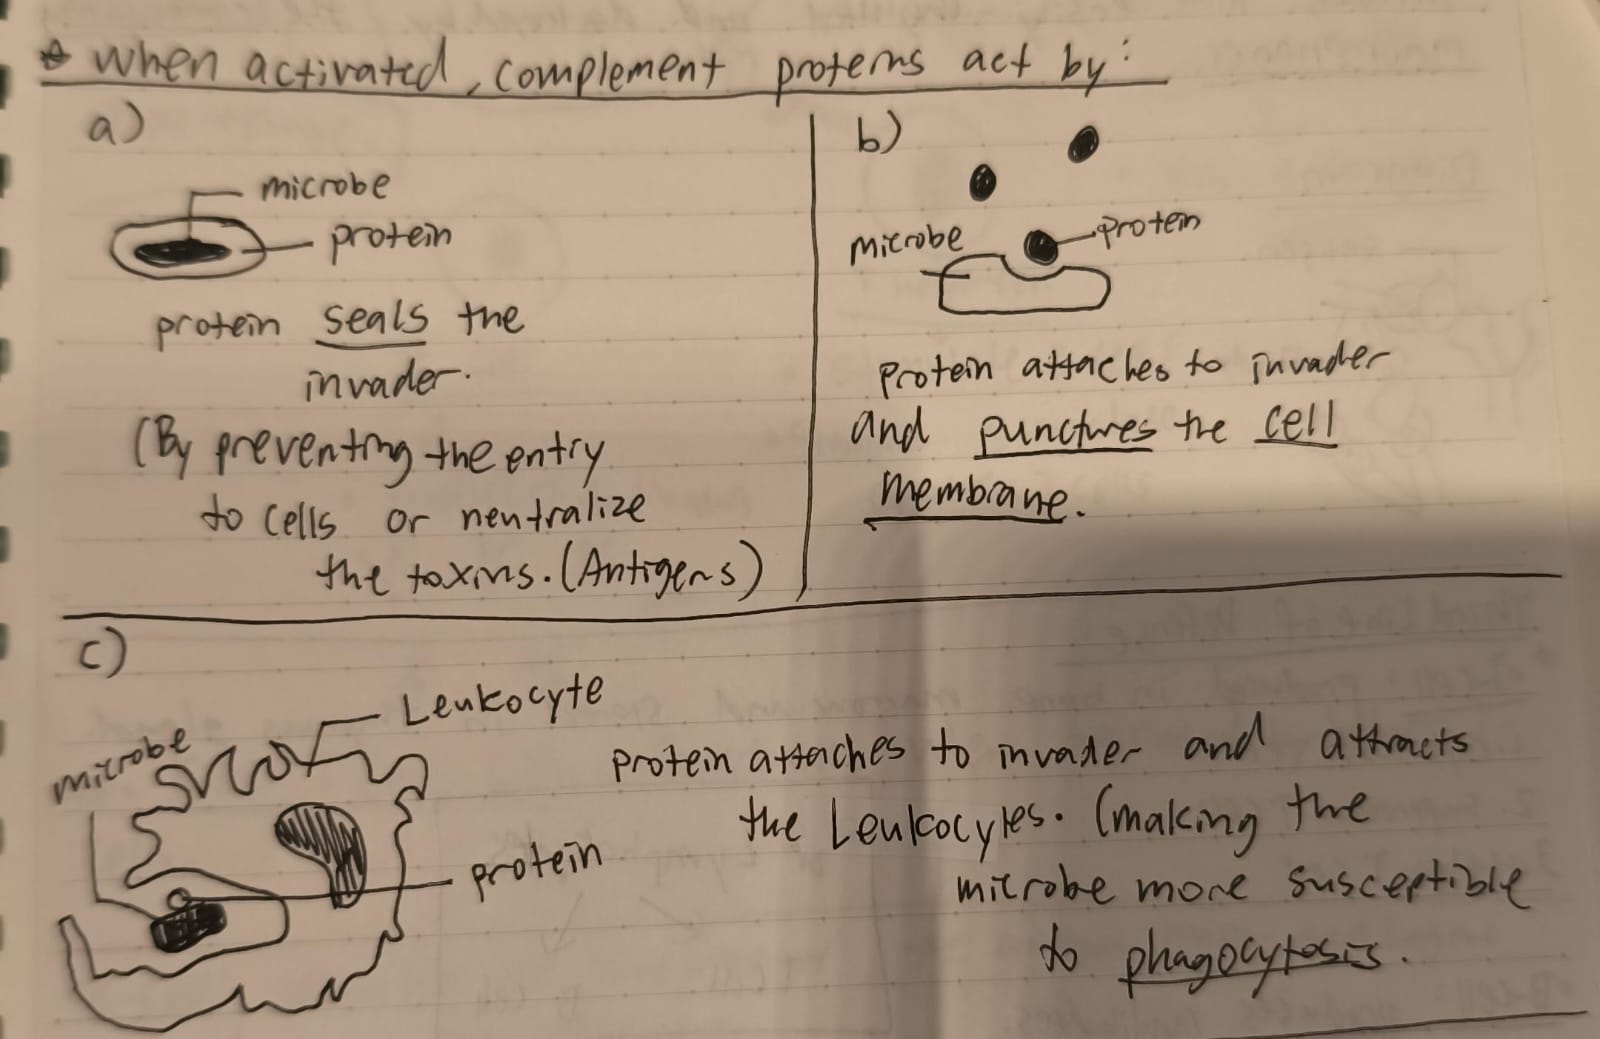 * When activated, complement proteins act by:
a)
microbe
protein
protein seals the
invader.
(By preventing the entry
to cells or neutralize
the toxins. (Antigens)
b)
microbe
protein
Protein attaches to invader
and punctures the cell
membrane.
c)
Leukocyte
microbe
protein
protein attaches to invader and attracts
the Leukocytes. (making the
microbe more susceptible
to phagocytosis.